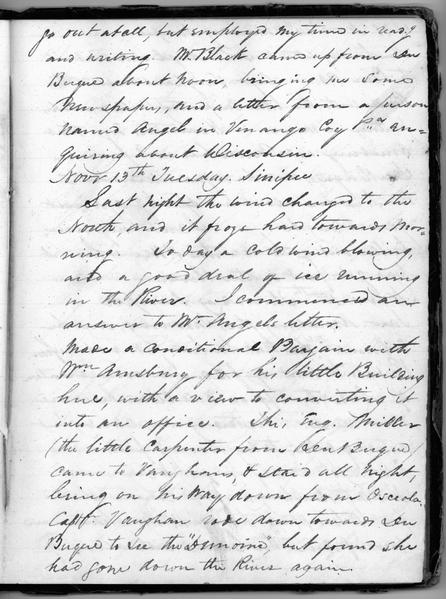 go out at all, but employed my time in readg
and writing. Mr. Black came up from Du
Buque about noon, bringing me some
Newspapers, and a letter from a person
named Angel in Venango Coy Pna en-
quiring about Wisconsin.
Novr 13th Tuesday. Sinipee
Last night the wind changed to the
North, and it froze hard towards Mor-
ning. To day a cold wind blowing,
and a good deal of ice running
in the River. I commenced an
answer to Mr. Angels letter.
Made a conditional Bargain with
Wm Ainsbury for his little Building
here, with a view to converting it
into an office. This Eug. Miller
(the little Carpenter from Du Buque)
came to Vaughans, & staid all night,
being on his way down from Osceola.
Capt. Vaughan rode down towards Du
Buque to see the "Demoine", but found she
had gone down the River again.